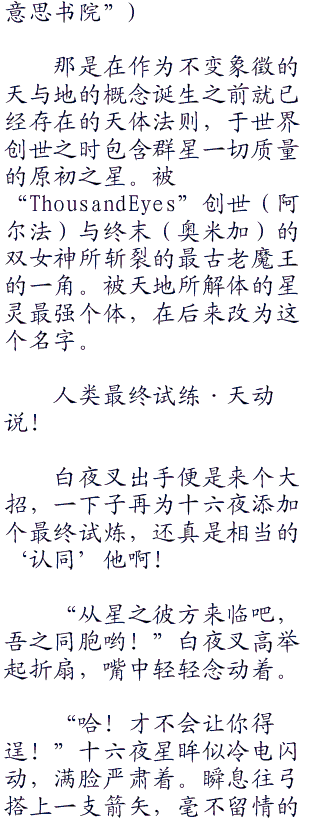 意思书院”）
那是在作为不变象徵的
天与地的概念诞生之前就已
经存在的天体法则，于世界
创世之时包含群星一切质量
的原初之星。被
“ThousandEyes”创世（阿
尔法）与终末（奥米加）的
双女神所斩裂的最古老魔王
的一角。被天地所解体的星
灵最强个体，在后来改为这
个名字。
人类最终试练·天动
说！
白夜叉出手便是来个大
招，一下子再为十六夜添加
个最终试炼，还真是相当的
‘认同’他啊！
“从星之彼方来临吧，
吾之同胞哟！”白夜叉高举
起折扇，嘴中轻轻念动着。
“哈！才不会让你得
逞！”十六夜星眸似冷电闪
动，满脸严肃着。瞬息往弓
搭上一支箭矢，毫不留情的